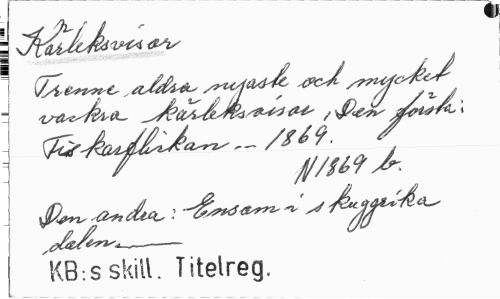 Kärleksvisor
Trenne aldra nyaste och mycket
vackra kärleksvisor, Den första:
Fiskarflickan -- 1869.
N1869 b.
Den andra: Ensam i skuggrika
dalen
KB:s skill. Titelreg.